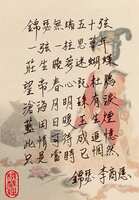 錦瑟無端五十弦
一弦一柱思華年
莊生曉夢迷蝴蝶
望帝春心託杜鵑
滄海月明珠有淚
藍田日暖玉生煙
此情可待成追憶
只是當時已惘然
錦瑟 李商隱